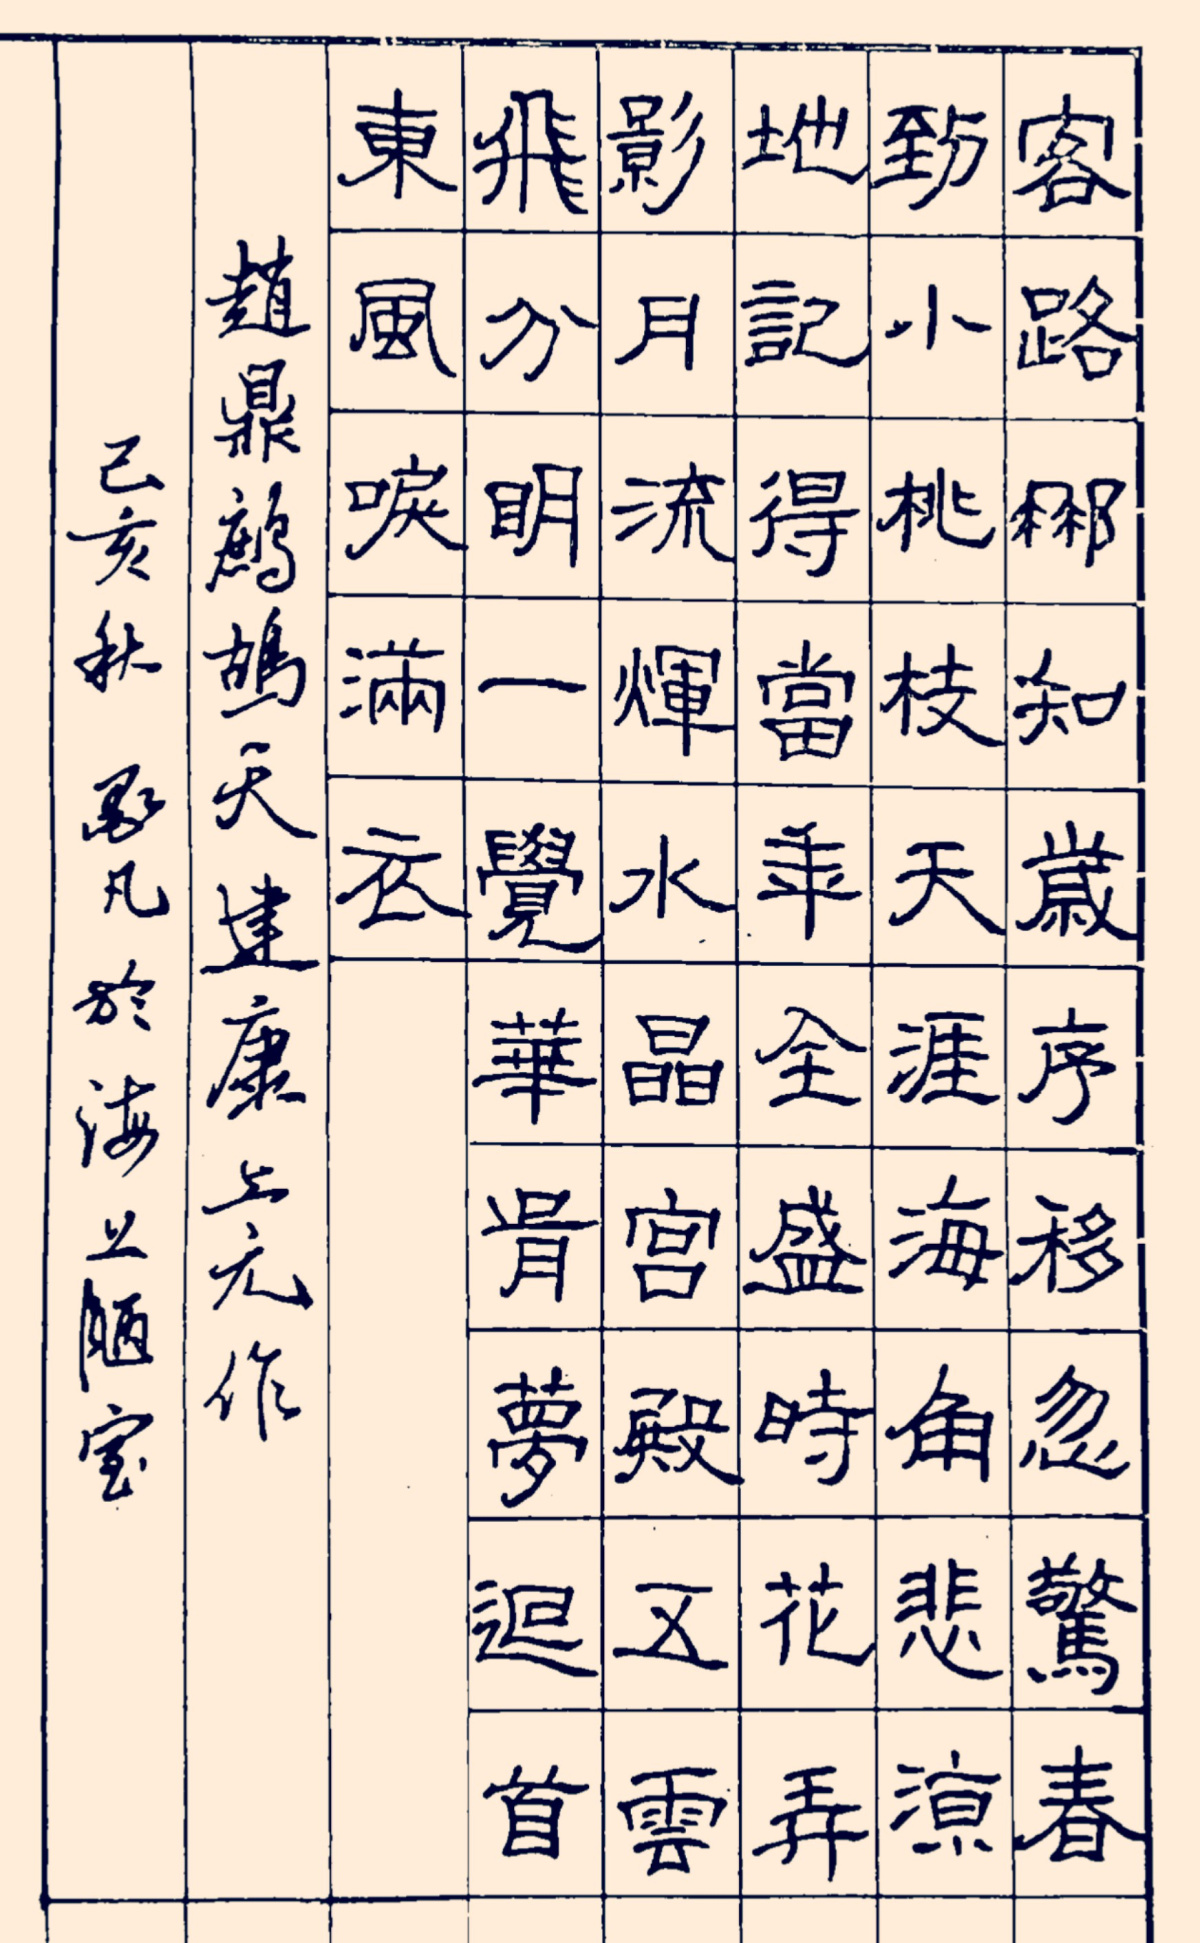 客路那知歲序移忽驚春
到小桃枝天涯海角悲涼
地記得當年全盛時花弄
影月流煇水晶宮殿五雲
飛分明一覺華胥夢迴首
東風唳滿衣
趙鼎鷓鴣天建康上元作
己亥秋 凡於海上陋室